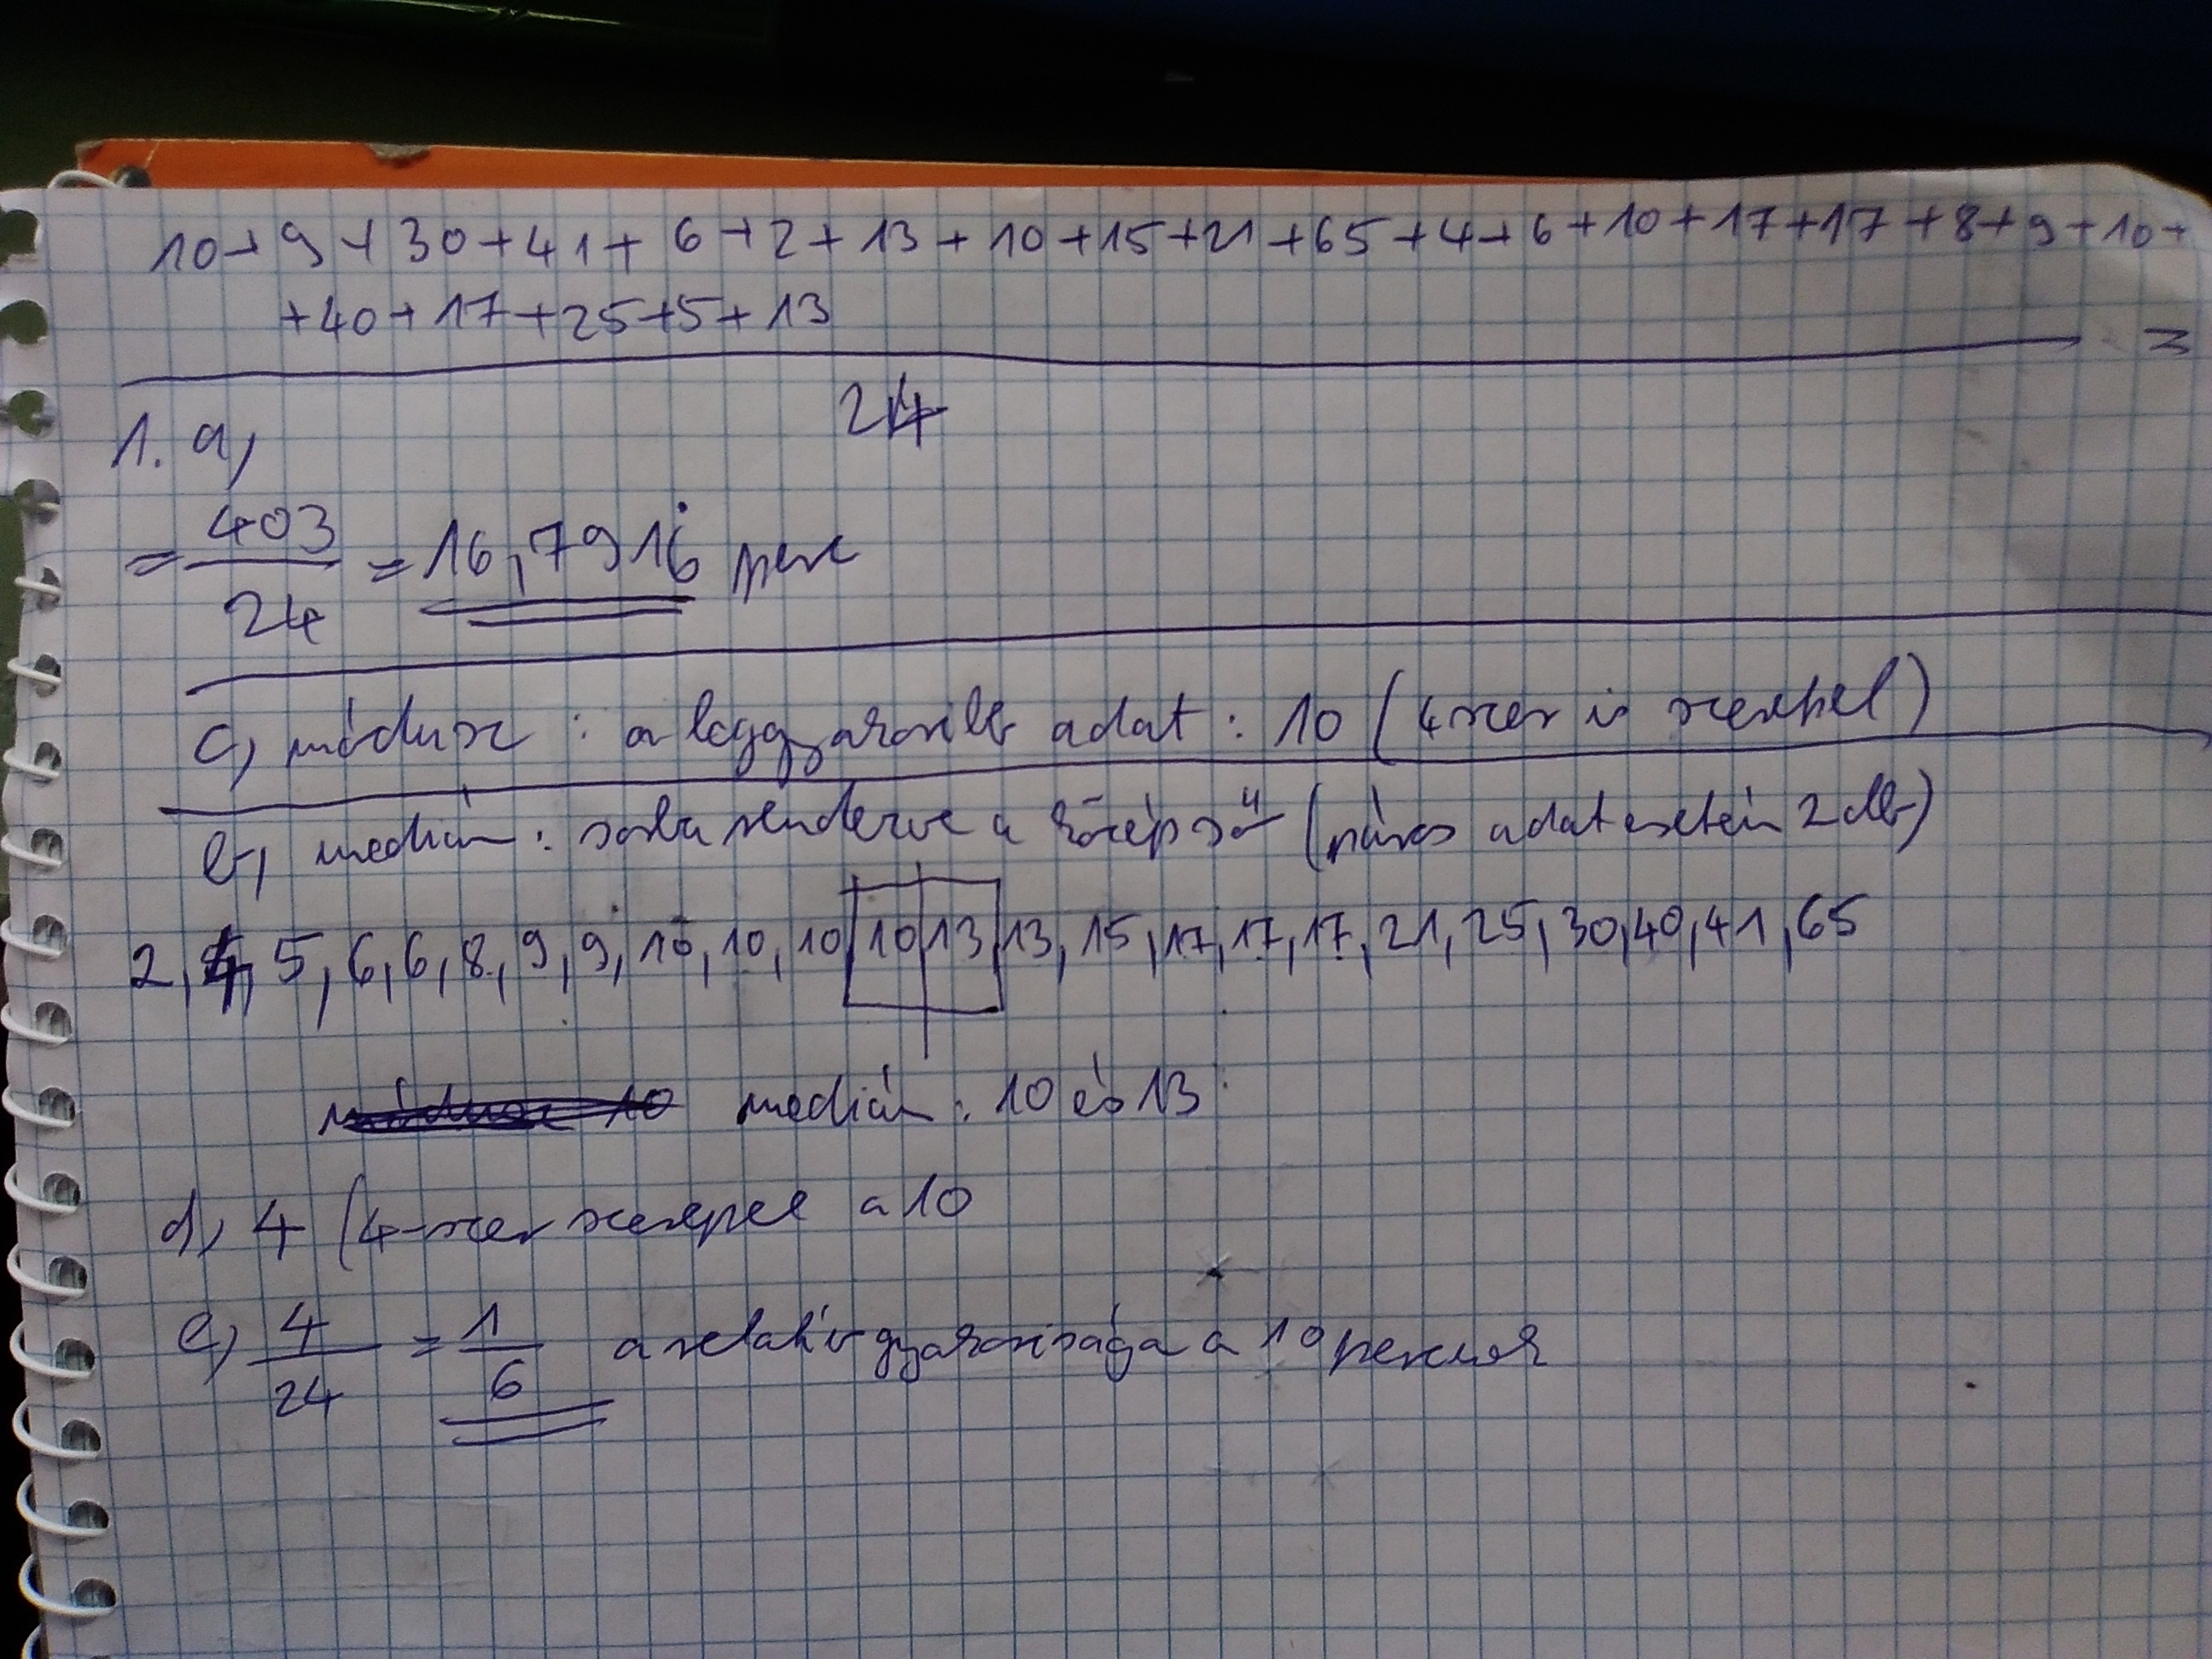 10+9+30+41+6+2+13+10+15+21+65+4+6+10+17+17+8+9+10+
+40+17+25+5+13 =
24
1. a,
= 403/24 = 16,7916̇ perc
c, módusz : a leggyakoribb adat : 10 (4szer is szerepel)
b, medián : sorba rendezve a középső (páros adat esetén 2 db)
2, 4, 5, 6, 6, 8, 9, 9, 10, 10, 10, 10, 13, 13, 15, 17, 17, 17, 21, 25, 30, 40, 41, 65
módusz 10 medián : 10 és 13
d, 4 (4-szer szerepel a 10
e, 4/24 = 1/6 a relatív gyakorisága a 10 percnek